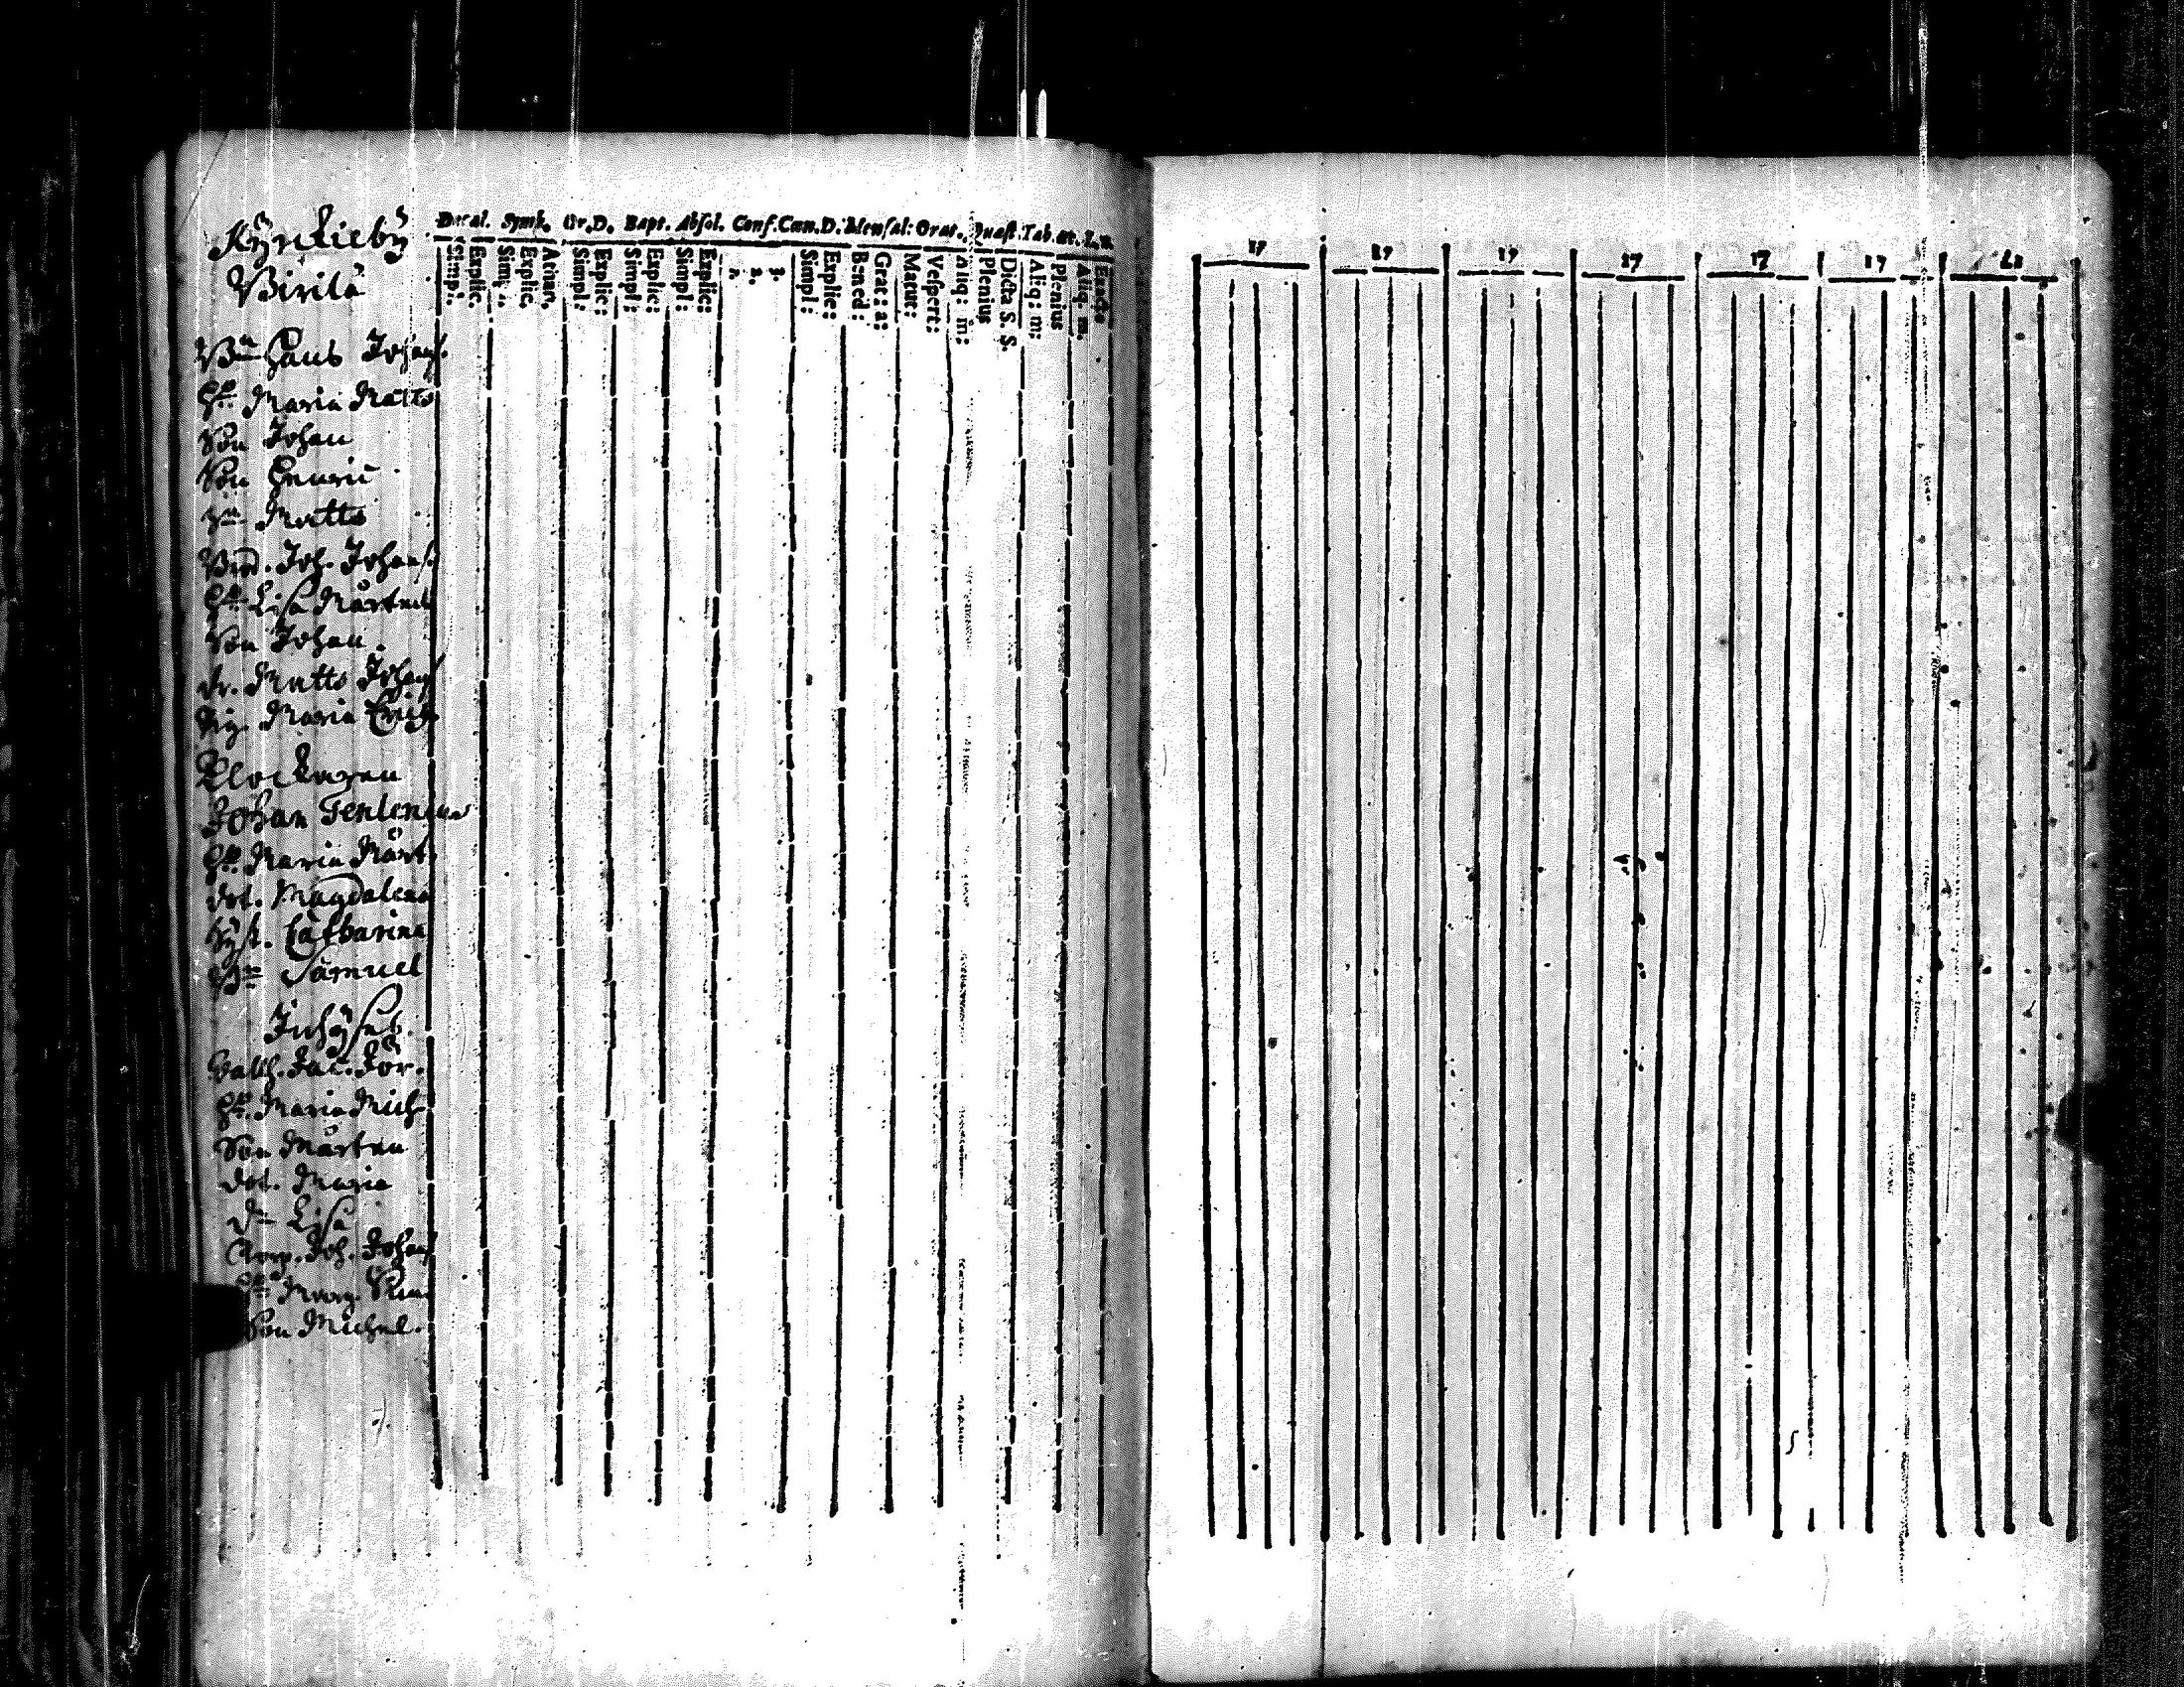 Kyrkieby
Virila
Bn Hans Johans.
H. Maria Matts
Son Johan
Son Henric
Matts
Joh. Johans.
H. Lisa Mårtens
Son Johan.
dr. Matts Johans
Pig. Maria Erics
Klockaren
Johan Tenlenius
H. Maria Mårt.
dot. Magdalena
Syst. Catharina
Samuel
Inhyses.
Jac. Jör.
H. Maria Mich
Son Mårten
dot. Maria
dn Lisa
Joh. Johans
Marg.
Son Michel.
Decal. Symb. Or. D. Bapt. Absol. Conf. Cœn. D. Mensal: Orat. Quæst. Tab. œc.
Simp: Explic. Simp. Explic. Athan. Simpl: Explic: Simpl: Explic: Simpl: Explic: 1. 2. 3. Simpl: Explic: Bened: Grat: a: Matut: Vespert: Aliq: m: Plenius Dicta S. S. Aliq: m: Plenius Aliq. m. Exacte
17 17 17 17 17 17